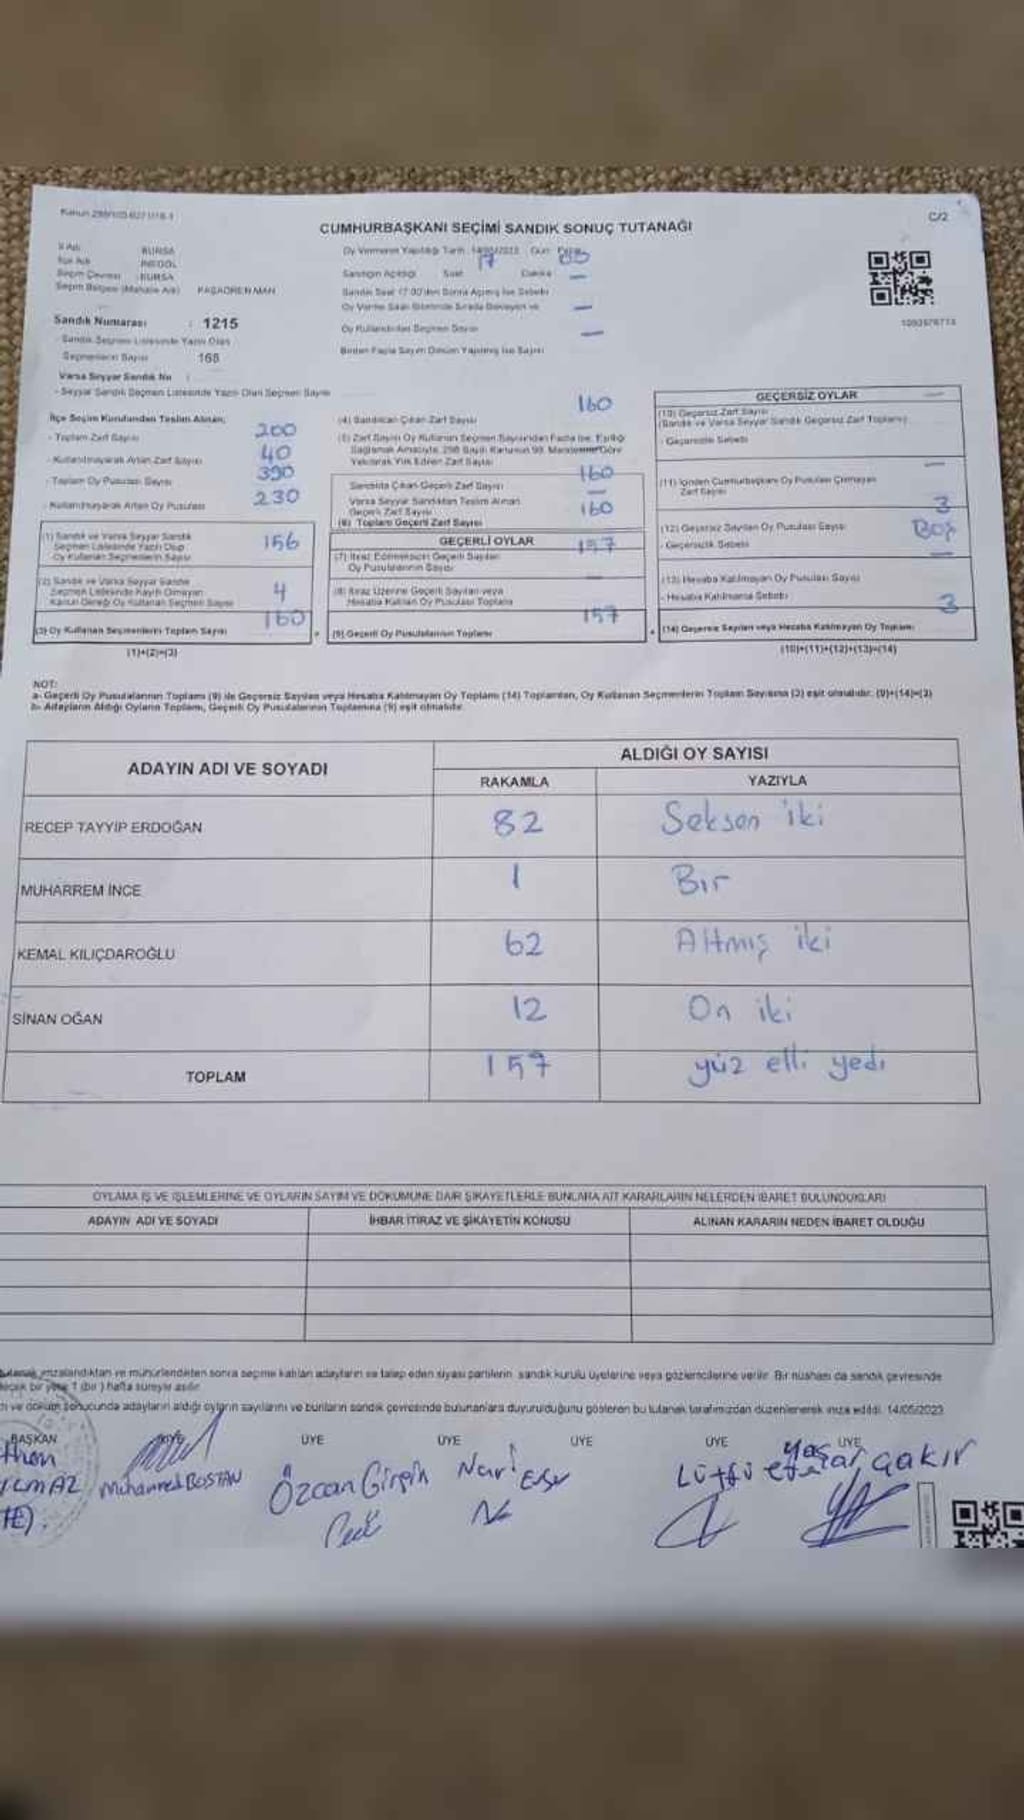 C/2
CUMHURBAŞKANI SEÇİMİ SANDIK SONUÇ TUTANAĞI
İl Adı BURSA
İlçe Adı İNEGÖL
Seçim Çevresi BURSA
Seçim Bölgesi (Mahalle Adı) PAŞAÖREN MAH
Sandık Numarası : 1215
Sandık Seçmen Listesinde Yazılı Olan
Seçmenlerin Sayısı 168
Varsa Seyyar Sandık No :
- Seyyar Sandık Seçmen Listesinde Yazılı Olan Seçmen Sayısı
Oy Vermenin Yapıldığı Tarih 14/05/2023 Gün Pazar
Sandığın Açıldığı Saat 17 Dakika
Sandık Saat 17.00'den Sonra Açılmış İse Sebebi
Oy Kullandırılan Seçmen Sayısı
Birden Fazla Sayım Döküm Yapılmış İse Sayısı
İlçe Seçim Kurulundan Teslim Alınan;
- Toplam Zarf Sayısı 200
- Kullanılmayarak Artan Zarf Sayısı 40
- Toplam Oy Pusulası Sayısı 390
- Kullanılmayarak Artan Oy Pusulası 230
(1) Sandık ve Varsa Seyyar Sandık
Seçmen Listesinde Yazılı Olup
Oy Kullanan Seçmenlerin Sayısı 156
(2) Sandık ve Varsa Seyyar Sandık
Seçmen Listesinde Kayıtlı Olmayan
Kanun Gereği Oy Kullanan Seçmen Sayısı 4
(3) Oy Kullanan Seçmenlerin Toplam Sayısı 160
(1)+(2)=(3)
(4) Sandıktan Çıkan Zarf Sayısı 160
(5) Zarf Sayısı Oy Kullanan Seçmen Sayısından Fazla İse, Eşitliği
Sağlamak Amacıyla, 298 Sayılı Kanunun 98. Maddesine Göre
Yakılarak Yok Edilen Zarf Sayısı
Sandıkta Çıkan Geçerli Zarf Sayısı 160
Varsa Seyyar Sandıktan Teslim Alınan
Geçerli Zarf Sayısı
(6) Toplam Geçerli Zarf Sayısı 160
GEÇERLİ OYLAR
(7) İtiraz Edilmeksizin Geçerli Sayılan
Oy Pusulalarının Sayısı 157
(8) İtiraz Üzerine Geçerli Sayılan veya
Hesaba Katılan Oy Pusulası Toplamı
(9) Geçerli Oy Pusulalarının Toplamı 157
GEÇERSİZ OYLAR
(10) Geçersiz Zarf Sayısı
(Sandık ve Varsa Seyyar Sandık Geçersiz Zarf Toplamı)
- Geçersizlik Sebebi
(11) İçinden Cumhurbaşkanı Oy Pusulası Çıkmayan
Zarf Sayısı
(12) Geçersiz Sayılan Oy Pusulası Sayısı 3
- Geçersizlik Sebebi Boş
(13) Hesaba Katılmayan Oy Pusulası Sayısı
- Hesaba Katılmama Sebebi
(14) Geçersiz Sayılan veya Hesaba Katılmayan Oy Toplamı 3
(10)+(11)+(12)+(13)=(14)
NOT:
a- Geçerli Oy Pusulalarının Toplamı (9) ile Geçersiz Sayılan veya Hesaba Katılmayan Oy Toplamı (14) Toplamları, Oy Kullanan Seçmenlerin Toplam Sayısına (3) eşit olmalıdır. (9)+(14)=(3)
b- Adayların Aldığı Oyların Toplamı, Geçerli Oy Pusulalarının Toplamına (9) eşit olmalıdır.
ADAYIN ADI VE SOYADI ALDIĞI OY SAYISI
RAKAMLA YAZIYLA
RECEP TAYYİP ERDOĞAN 82 Seksen iki
MUHARREM İNCE 1 Bir
KEMAL KILIÇDAROĞLU 62 Altmış iki
SİNAN OĞAN 12 On iki
TOPLAM 157 yüz elli yedi
OYLAMA İŞ VE İŞLEMLERİNE VE OYLARIN SAYIM VE DÖKÜMÜNE DAİR ŞİKAYETLERLE BUNLARA AİT KARARLARIN NELERDEN İBARET BULUNDUKLARI
ADAYIN ADI VE SOYADI İHBAR İTİRAZ VE ŞİKAYETİN KONUSU ALINAN KARARIN NEDEN İBARET OLDUĞU
imzalandıktan ve mühürlendikten sonra seçime katılan adayların ve talep eden siyasi partilerin sandık kurulu üyelerine veya gözlemcilerine verilir. Bir nüshası da sandık çevresinde
bir yere 1 (bir) hafta süreyle asılır.
ve döküm sonucunda adayların aldığı oyların sayılarını ve bunların sandık çevresinde bulunanlara duyurulduğunu gösteren bu tutanak tarafımızdan düzenlenerek imza edildi. 14/05/2023
BAŞKAN ÜYE ÜYE ÜYE ÜYE ÜYE
Muhammed BOSTAN Özcan Girgin Nuri Lütfü Yaşar Çakır